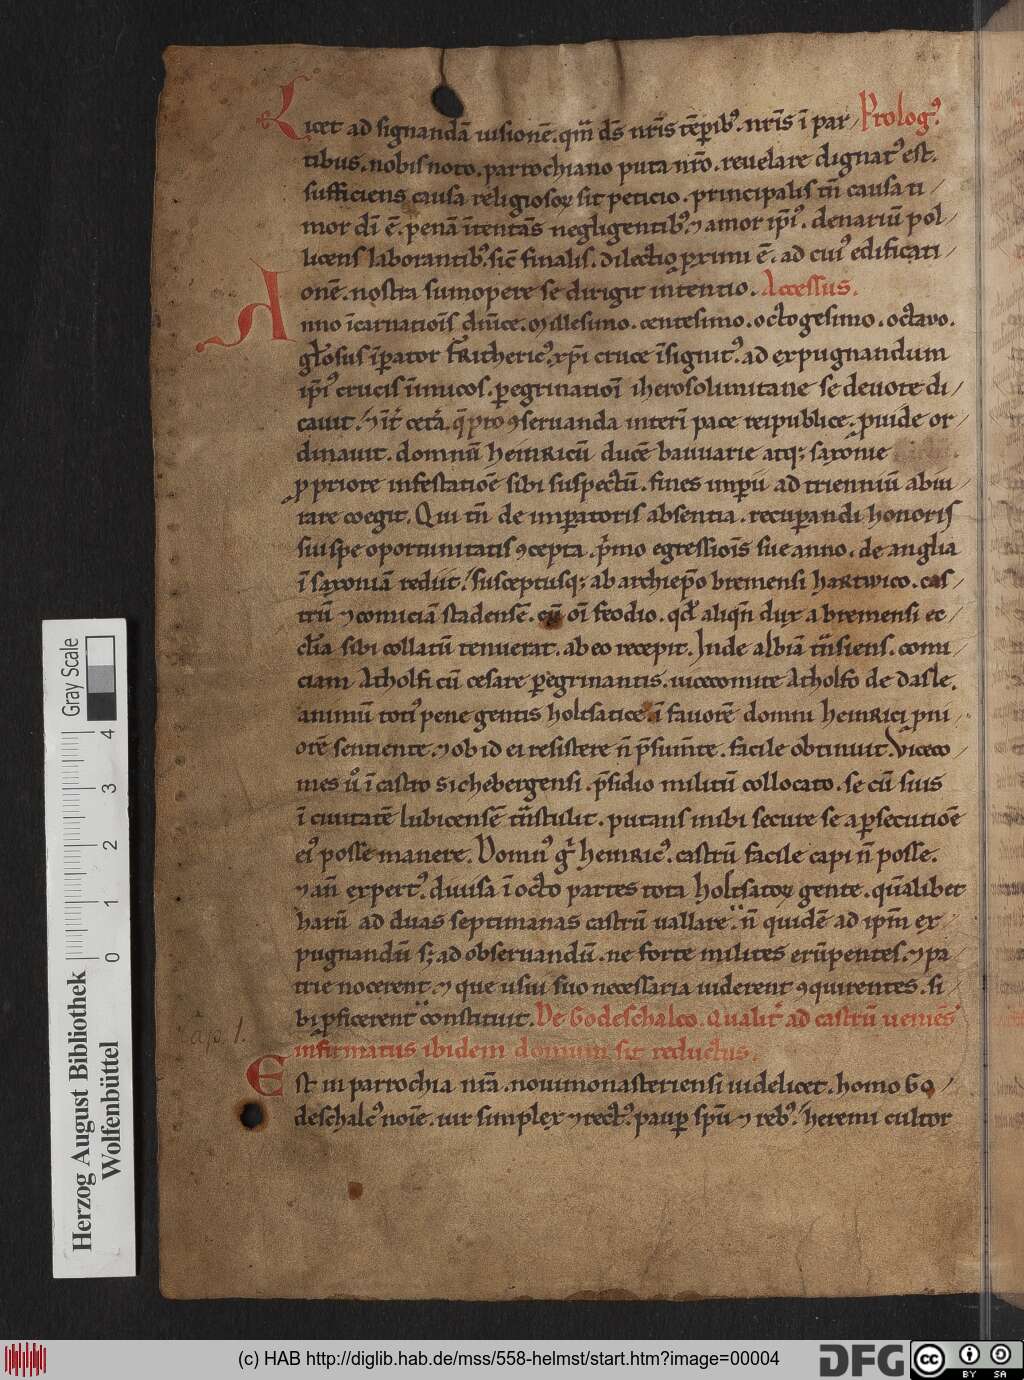 Licet ad signandā uisionē. qm̄ d̄s nr̄is tēporib⁹. nr̄is ī par/ Prolog⁹.
tibus. nobis noto. parrochiano puta nr̄o. reuelare dignat⁹ est.
sufficiens causa religiosoꝝ sit peticio. principalis tn̄ causa ti/
mor dī ē. penā ītentās negligentib⁹. ⁊ amor ip̄i⁹. denariū pol/
licens laborantib⁹. sic̄ finalis. dilectio ꝓximi ē. ad cui⁹ edificati/
onē. nostra sumopere se dirigit intentio. Accessus.
Anno īcarnatiōis dn̄ice. millesimo. centesimo. octogesimo. octauo.
gl̄osus īꝑator fRitheric⁹. xp̄i cruce īsignit⁹. ad expugnandum
ip̄i⁹ crucis īimicos. ꝑegrinatiōī iherosolimitane se deuote di/
cauit. ⁊ īt̄ cet̄a. q̄ pro ꝯseruanda interī pace reipublice. ꝓuide or/
dinauit. domnū heinRicū ducē bauuarie atq; saxonie
ꝓ priore infestatiōē sibi suspectū. fines imꝑii ad trienniū abiu/
rare coegit. Qui tn̄ de imꝑatoris absentia. recuꝑandi honoris
sui spe oportunitatis ꝯcepta. p̄mo egressiōis sue anno. de anglia
ī saxoniā rediit. susceptusq; ab archiep̄o bremensi haRtwico. cas/
trū ⁊ comiciā stadensē. cū oī feodio. qd̄ aliqn̄ dux a bremensi ec/
cl̄ia sibi collatū tenuerat. ab eo recepit. Inde albiā tn̄siens. comi/
ciam Atholfi cū cesare ꝑegrinantis. uicecomite Atholfo de dasle.
animū toti⁹ pene gentis holtsatice. ī fauorē domni heinRici pni/
orē sentiente. ⁊ ob id ei resistere n̄ p̄sum̄te. facile obtinuit. Viceco/
mes ū ī castro sichebergensi. p̄sidio militū collocato. se cū suis
ī ciuitatē lubicensē tn̄stulit. putans inibi secure se a ꝑsecutiōē
ei⁹ posse manere. Domn⁹ g̅ heinRic⁹. castrū facile capi n̄ posse.
⁊ an̄ expert⁹. diuisa ī octo partes tota holtsatoꝝ gente. qūalibet
harū ad duas septimanas castrū uallare. n̄ quidē ad ip̄m ex/
pugnandū s; ad obseruandū. ne forte milites erūpentes. ⁊ pa/
trie nocerent. ⁊ que usui suo necessaria uiderent ꝯquirentes. si/
bi ꝓficerent constituit. De Godeschalco. Qualit̄ ad castrū ueniēs
infirmatus ibidem domum sit reductus.
Cap. 1.
Est in parrochia nr̄a. nouimonasteriensi uidelicet. homo Go/
deschalc⁹ noīe. uir simplex ⁊ rect⁹. pauꝑ sp̄u ⁊ reb⁹. heremi cultor
Gray Scale
0 1 2 3 4
Herzog August Bibliothek
Wolfenbüttel
(c) HAB http://diglib.hab.de/mss/558-helmst/start.htm?image=00004
DFG
cc BY SA